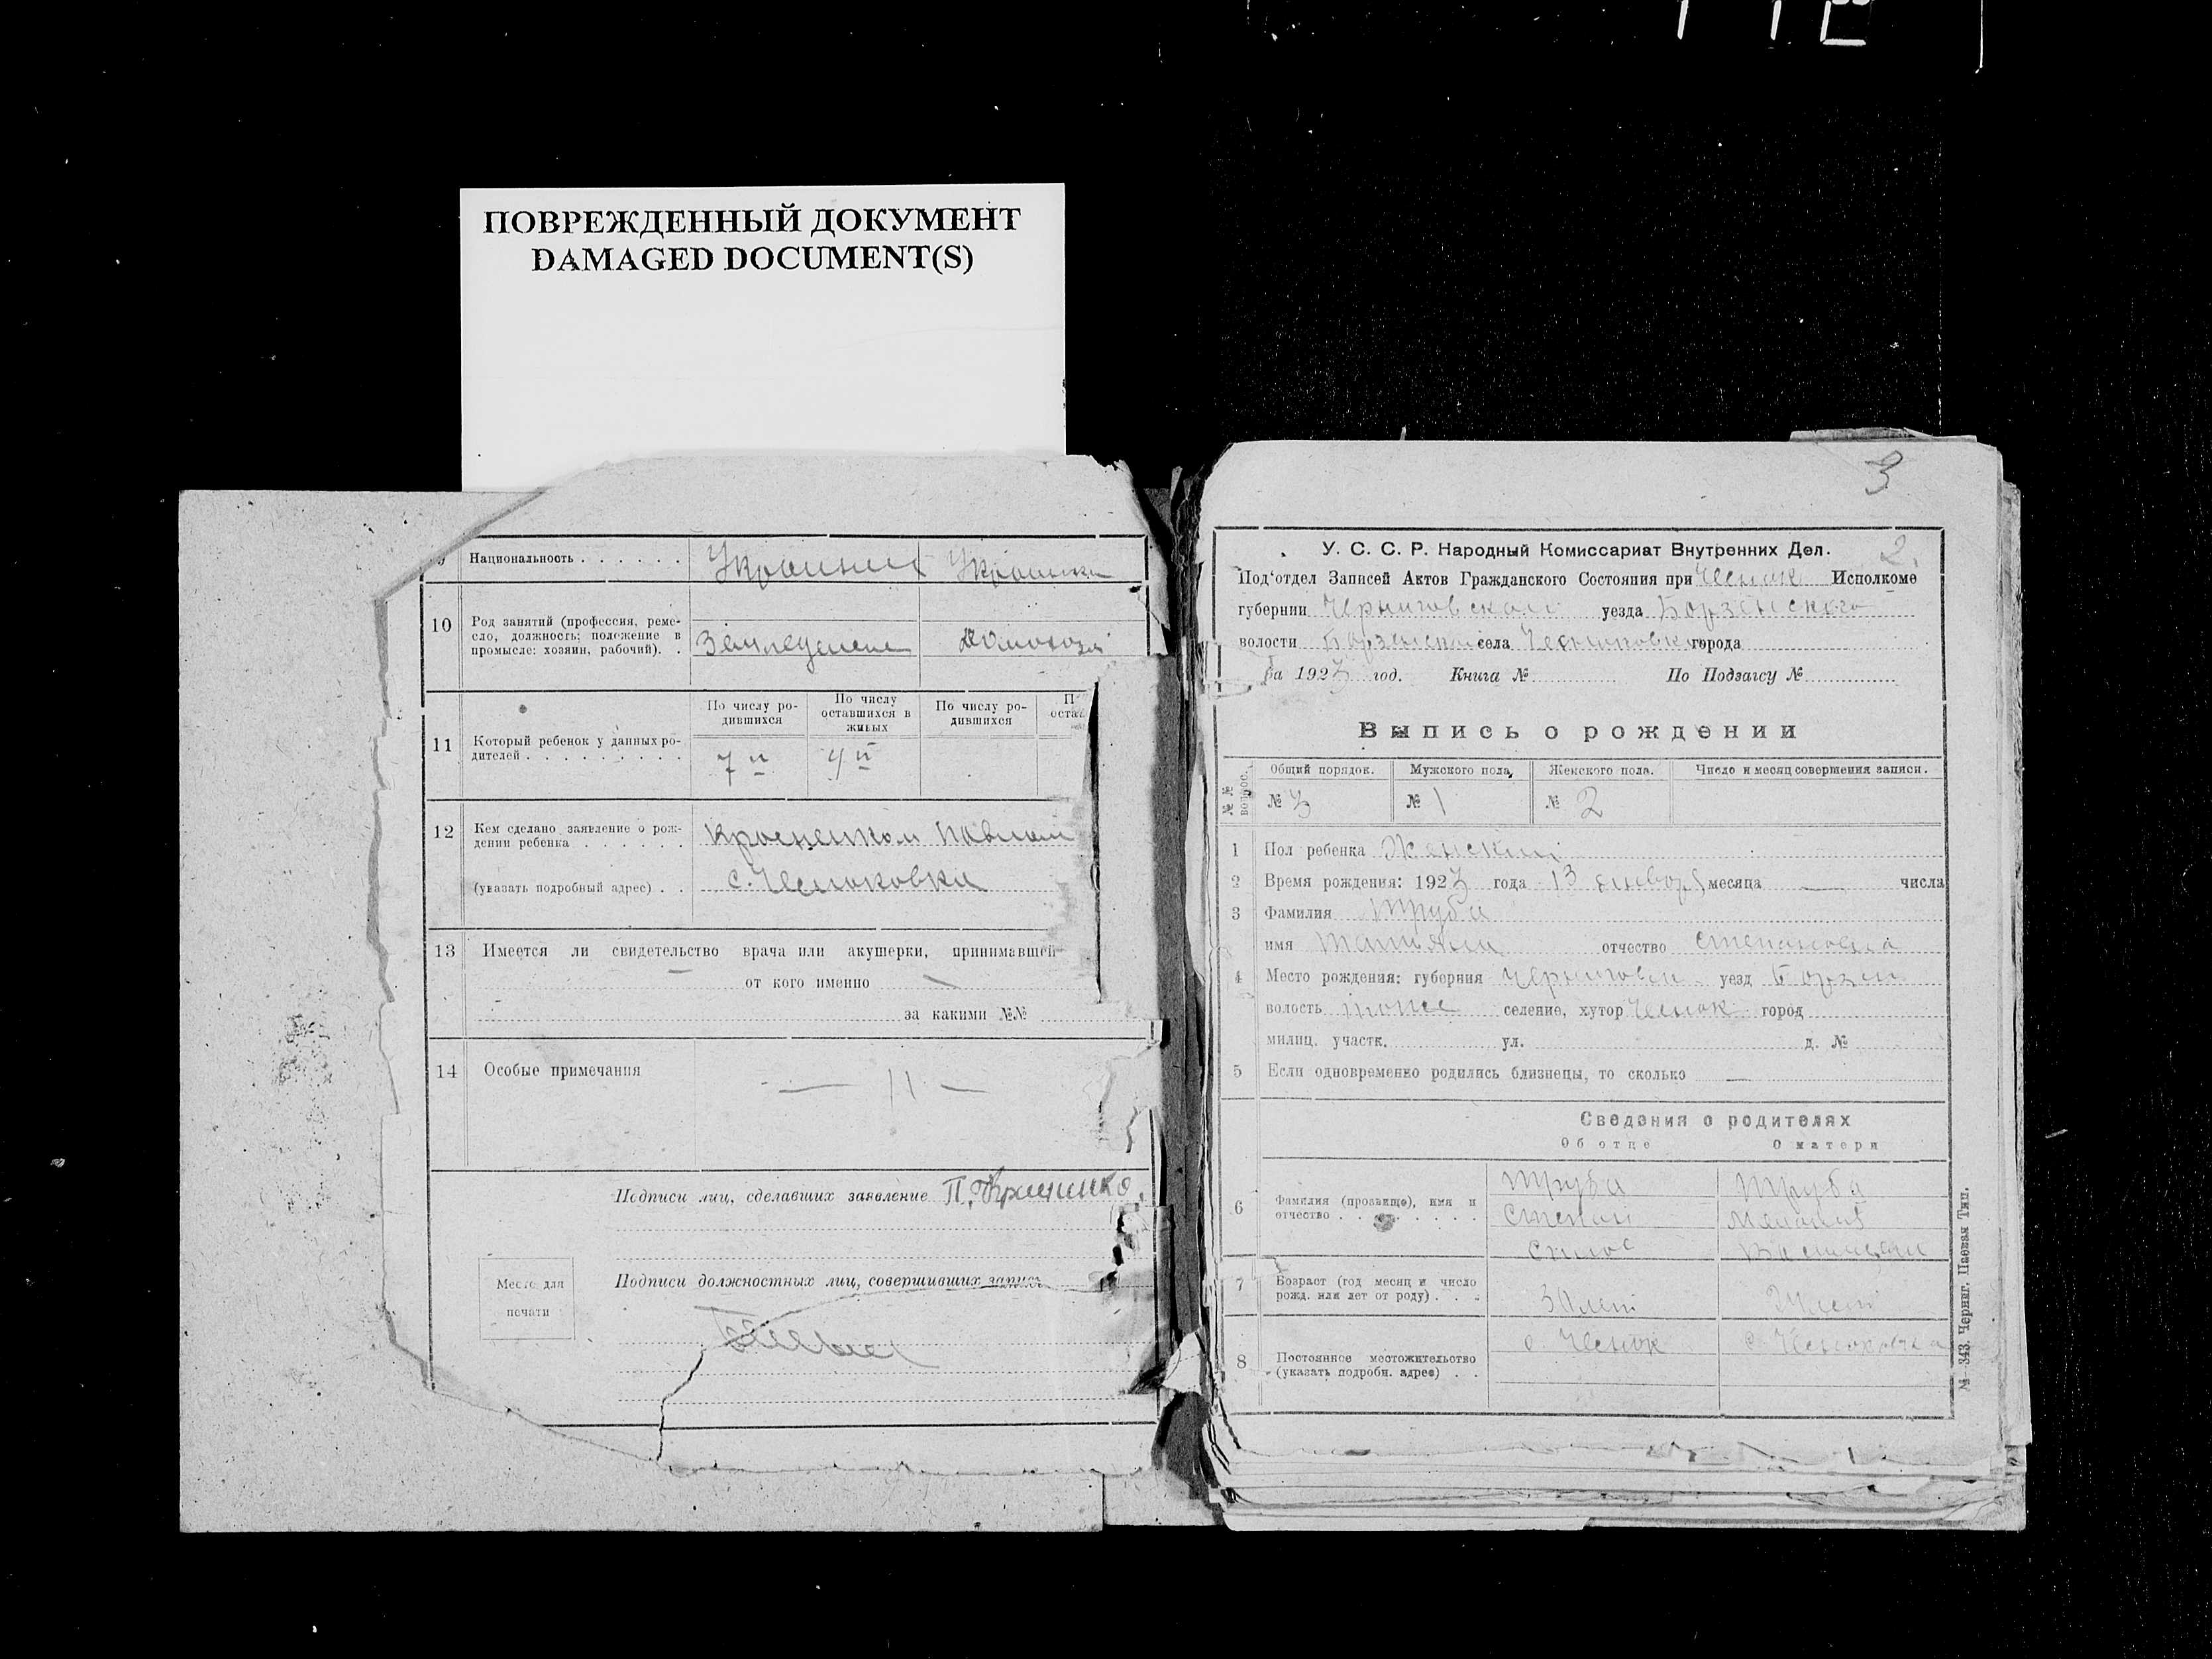 ПОВРЕЖДЕННЫЙ ДОКУМЕНТ
DAMAGED DOCUMENT(S)
Национальность . . . . . .
10 Род занятий (профессия, реме-
сло, должность: положение в
промысле: хозяин, рабочий). .
По числу ро-
дившихся
По числу
оставшихся в
живых
По числу ро-
дившихся
П
оста
11 Который ребенок у данных ро-
дителей . . . . . . . . .
7й 4й
12 Кем сделано заявление о рож-
дении ребенка . . . . . .
Павлом
(указать подробный адрес) . .
с. Чесноковки
13 Имеется ли свидетельство врача или акушерки, принимавшей
от кого именно
за какими №№
14 Особые примечания
— 11 —
Подписи лиц, сделавших заявление П.
Место для
печати
Подписи должностных лиц, совершивших запись
3
У. С. С. Р. Народный Комиссариат Внутренних Дел. 2.
Под'отдел Записей Актов Гражданского Состояния при Чеснок Исполкоме
губернии Черниговской уезда Борзенского
волости Борзенской села Чесноковки города
За 1923 год. Книга № По Подзагсу №
Выпись о рождении
№№ вопрос.
Общий порядок. Мужского пола, Женского пола. Число и месяц совершения записи.
№ 3 № 1 № 2
1 Пол ребенка Женский
2 Время рождения: 1923 года 13 января месяца — числа
3 Фамилия Труба
имя Татьяна отчество Степановна
4 Место рождения: губерния Черниговск уезд Борзен
волость тоже селение, хутор Чеснок город
милиц. участк. ул. д. №
5 Если одновременно родились близнецы, то сколько —
Сведения о родителях
Об отце О матери
6 Фамилия (прозвище), имя и
отчество . . . . . . . .
Труба Труба
Степан
7 Возраст (год месяц и число
рожд. или лет от роду) . . .
30 лет
8 Постоянное местожительство
(указать подробн. адрес) . .
с Чеснок с. Чесноковка
№—343. Черниг. Паевая Тип.